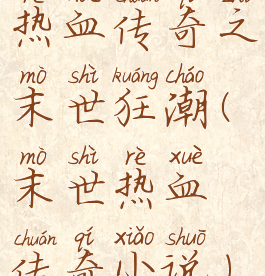 热血传奇之
mò shì kuáng cháo
末世狂潮(
mò shì rè xuè
末世热血
chuán qí xiǎo shuō
传奇小说)